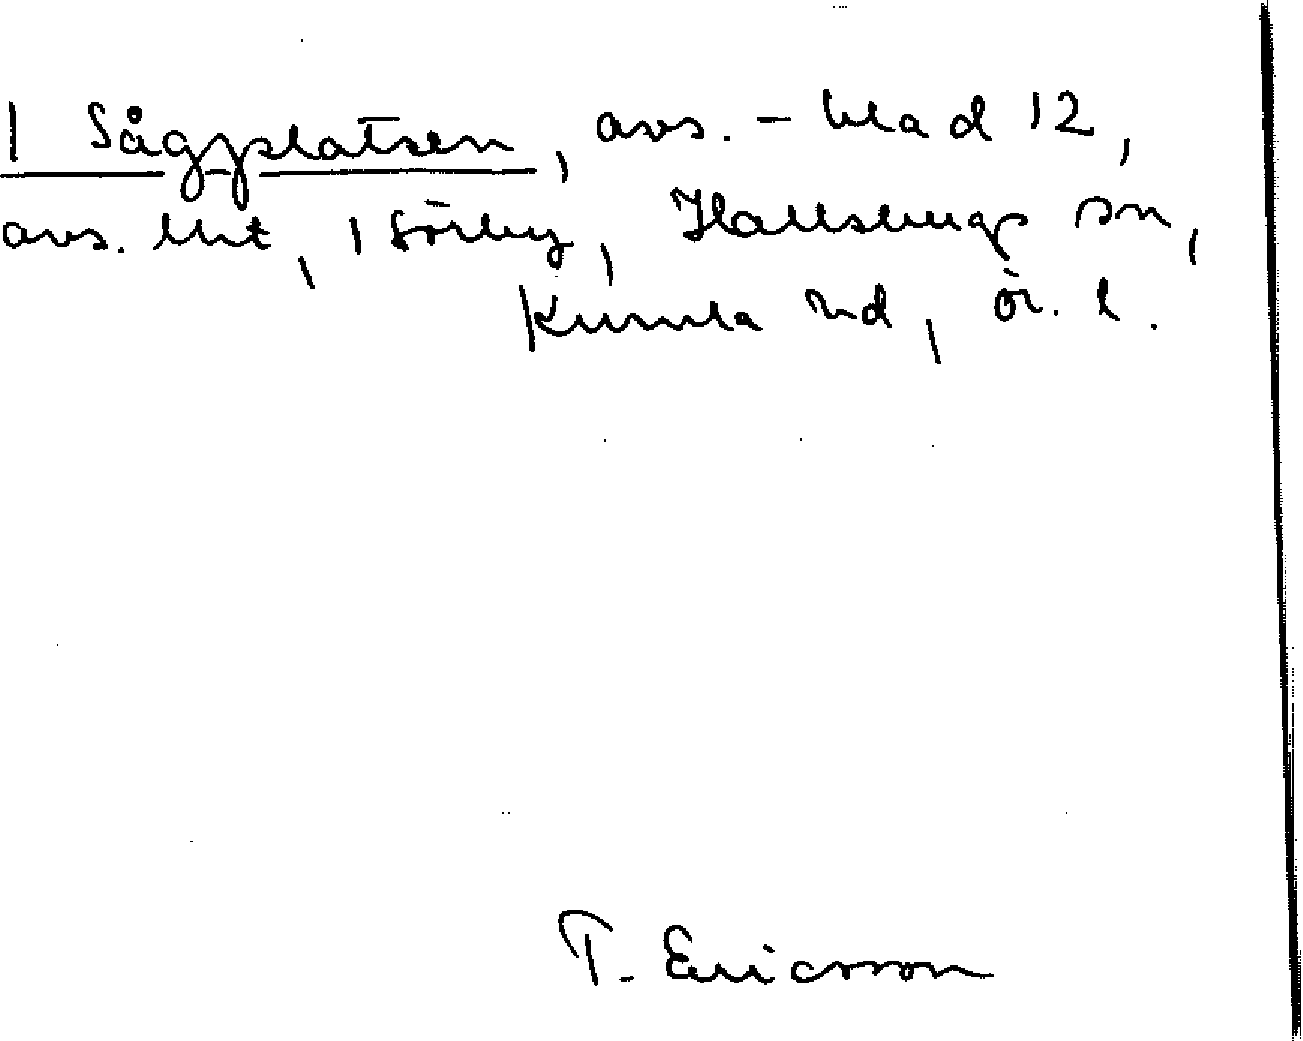 | Sågplatsen, avs. - blad 12,
avs. Utt, | Sörby, Hallsbergs sn,
Kumla hd, Ör. l.
T. Ericsson